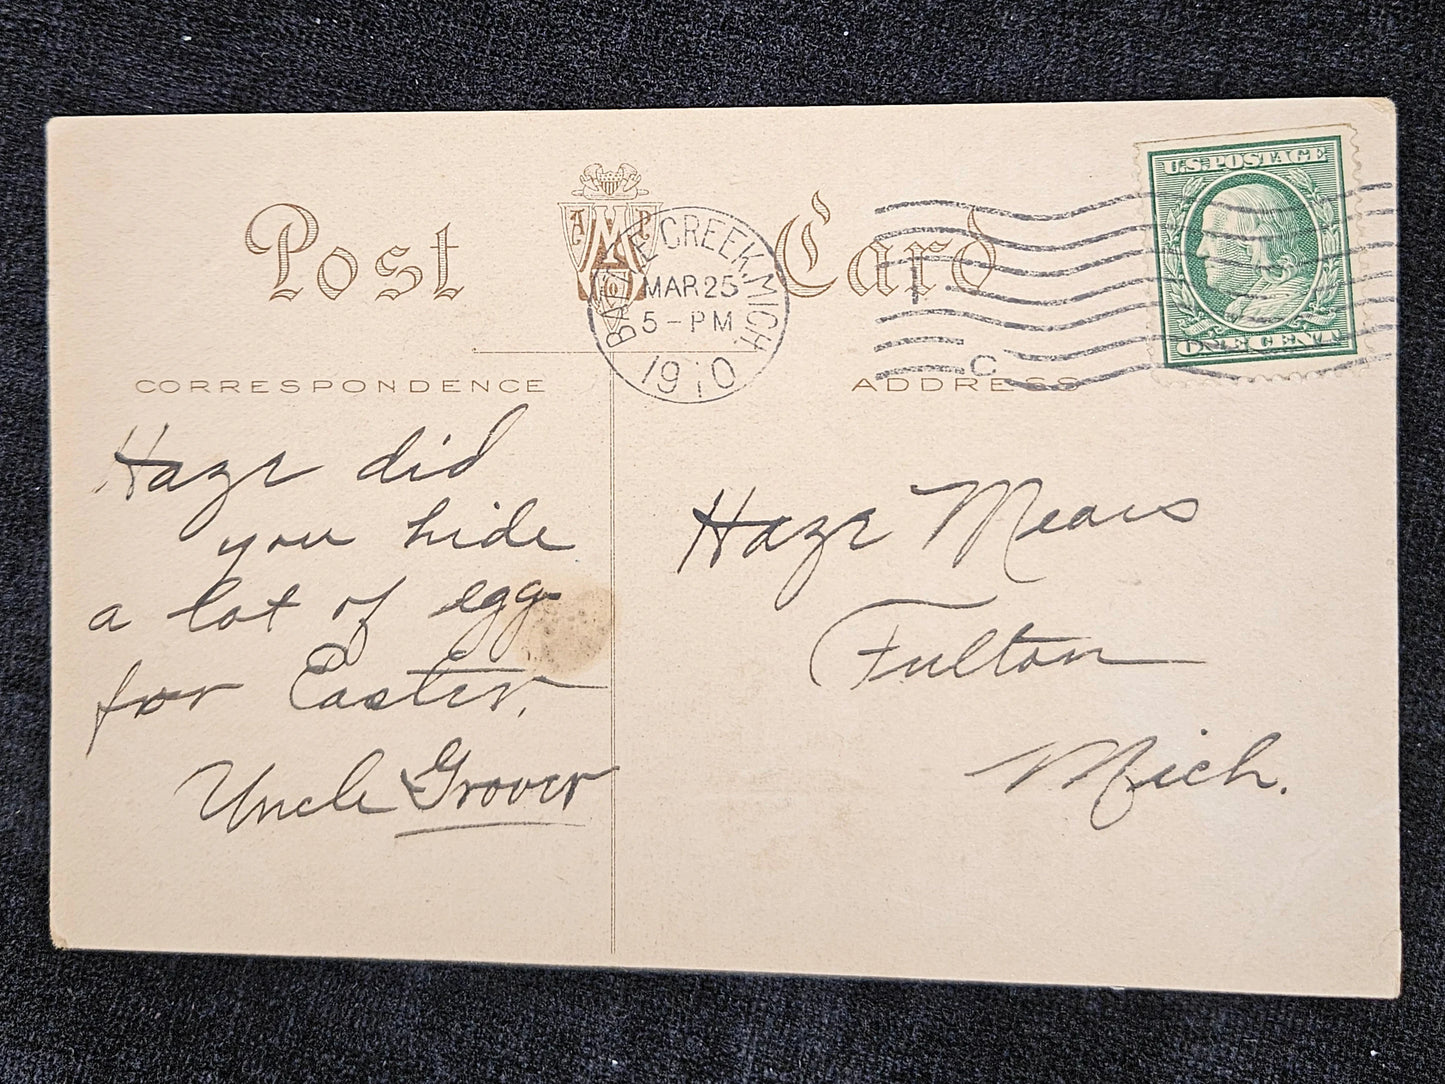 Post Card
A M P
Co
BATTLE CREEK, MICH.
MAR 25
5-PM
1910
C
U.S. POSTAGE
ONE CENT
CORRESPONDENCE
ADDRESS
Haze did
you hide
a lot of egg
for Easter.
Uncle Grover
Haze Mears
Fulton
Mich.